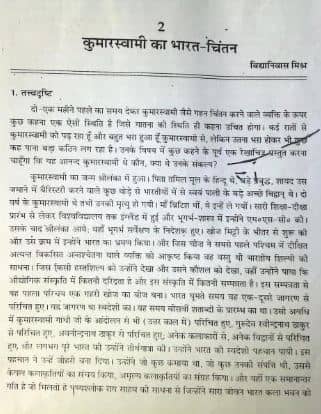 2
कुमारस्वामी का भारत-चिंतन
विद्यानिवास मिश्र
1. तत्त्वदृष्टि
दो-एक महीने पहले का समय देकर कुमारस्वामी जैसे गहन चिंतन करने वाले व्यक्ति के ऊपर
कुछ कहना एक ऐसी स्थिति है जिसे यातना की स्थिति ही कहना उचित होगा। कई रातों से
कुमारस्वामी को पढ़ रहा हूँ और बहुत भरा हुआ हूँ कुमारस्वामी से, लेकिन उतना भरा होकर भी कुछ
कह पाना बड़ा कठिन लग रहा है। उनके विषय में कुछ कहने के पूर्व एक रेखाचित्र प्रस्तुत करना
चाहूँगा कि यह आनन्द कुमारस्वामी थे कौन, क्या थे उनके संकल्प?
कुमारस्वामी का जन्म श्रीलंका में हुआ। पिता तमिल मूल के हिन्दू थे, बड़े प्रबुद्ध, शायद उस
जमाने में बैरिस्टरी करने वाले कुछ थोड़े से भारतीयों में से स्वयं पाली के बड़े अच्छे विद्वान थे। दो
वर्ष के कुमारस्वामी थे तभी उनकी मृत्यु हो गयी। माँ ब्रिटिश थीं, वे इन्हें ले गयीं। सारी शिक्षा-दीक्षा
प्रारंभ से लेकर विश्वविद्यालय तक इंग्लैंड में हुई और भूगर्भ-शास्त्र में इन्होंने एम०एस-सी० की।
उसके बाद श्रीलंका आये, यहाँ भूगर्भ सर्वेक्षण के निदेशक हुए। खोज मिट्टी के भीतर से शुरू की
और उसी क्रम में इन्होंने भारत का भ्रमण किया। और जिस चीज ने सबसे पहले पश्चिम में दीक्षित
अत्यन्त विकसित अन्तश्चेतना वाले व्यक्ति को आकृष्ट किया वह वस्तु थी भारतीय शिल्पी की
साधना। जिस किसी हस्तशिल्प को उन्होंने देखा और उसने कौशल को देखा, वहीं उन्होंने पाया कि
औद्योगिक संस्कृति में कितनी दरिद्रता है और इस संस्कृति में कितनी सम्पन्नता है। इस सम्पन्नता से
यह पहला परिचय एक गहरी खोज का बीज बना। भारत घूमते समय वह एक-दूसरे जागरण से
परिचित हुए। वह जागरण था स्वदेशी का। वह समय बीसवीं शताब्दी के प्रारम्भ का था। उसी अवधि
में कुमारस्वामी गांधी जी के आंदोलन से भी (उत्तर काल में) परिचित हुए, गुरुदेव रवीन्द्रनाथ ठाकुर
से परिचित हुए, अवनीन्द्रनाथ ठाकुर से परिचित हुए, अनेक कलाकारों से, अनेक विद्वानों से परिचित
हुए, और लगभग पूरे भारत की उन्होंने तीर्थयात्रा की। उन्होंने भारत की स्वदेशी पहचान पायी। इस
पहचान ने उन्हें जौहरी बना दिया। उन्होंने जो कुछ कमाया था, जो कुछ उनकी संपत्ति थी, उससे
केवल कलाकृतियों का संचय किया, अमूल्य कलाकृतियों का संग्रह किया। और यहीं एक समानान्तर
गति है जो मिलती है पुण्यश्लोक राय साहब की साधना से जिन्होंने सारा जीवन भारत कला भवन को